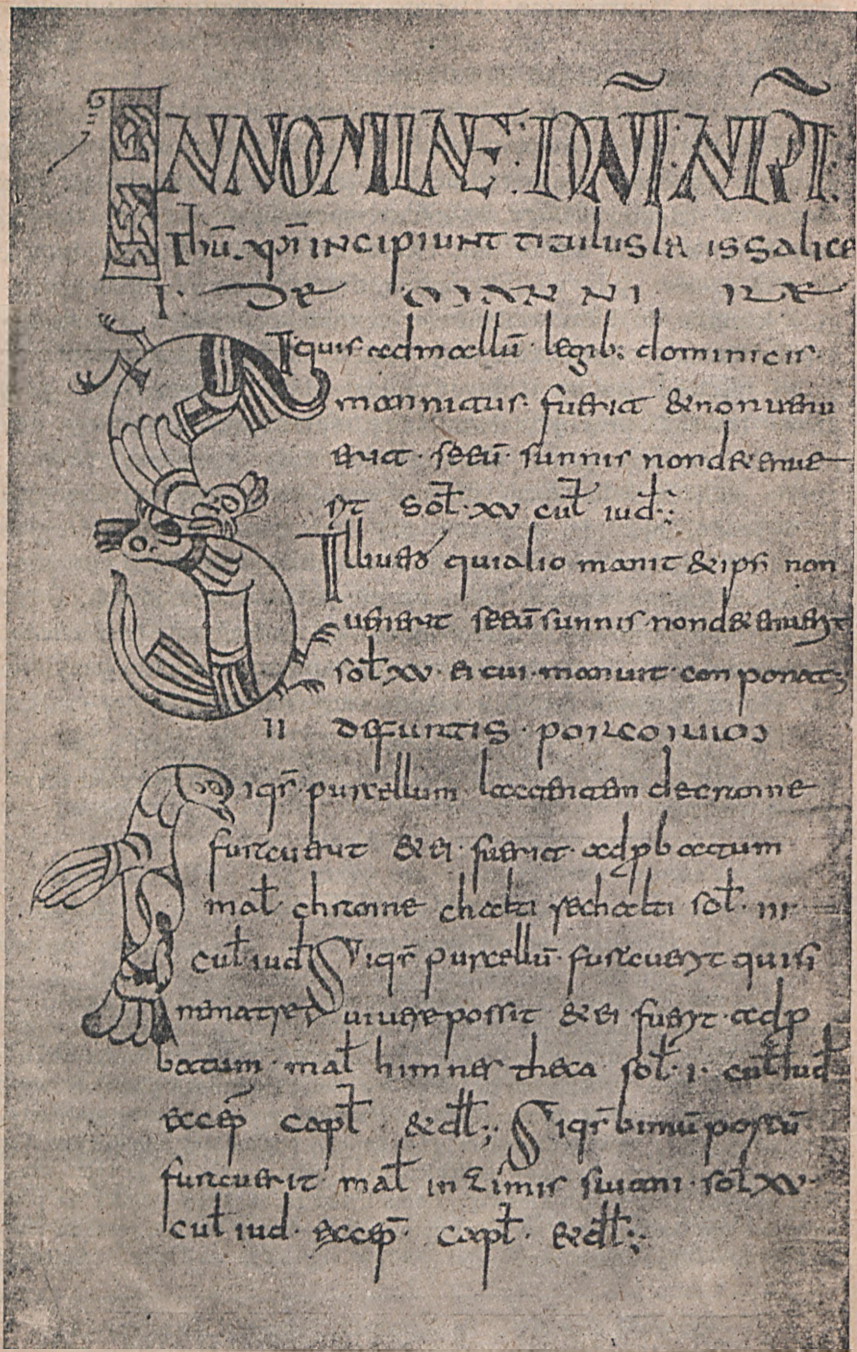 IN NOMINE: DN̄I: NR̄I:
Ihū. xp̄i incipiunt titulus lex is salice
I. De mannire
Siquis admallū legib; dominicis.
mannitus. fuerit & non ueni
erit. seeū sunnis non detenue
rit soł. xv cuł iud;
Ille uero qui alio manit & ipsi non
uenerit seeū sunnis non detenuerit
soł xv. ei cui. manuit. con ponat;
II de furtis. porcorum
Siqr̄ purcellum lactantem de cranne
furauerit & ei fuerit adpbatum
mał chranne chalti rechalti soł. III.
cuł iud Siqr̄ purcellū. furauerit qui si
ne matrem uiuere possit & ei fuerit. adp
batum. mał himnes theca soł. I. cuł iud
excep̄ capł. & dił; Siqr̄ bimū porcū
furauerit mał in zimis suiani. soł xv.
cuł iud. excep̄ capł. & dił;